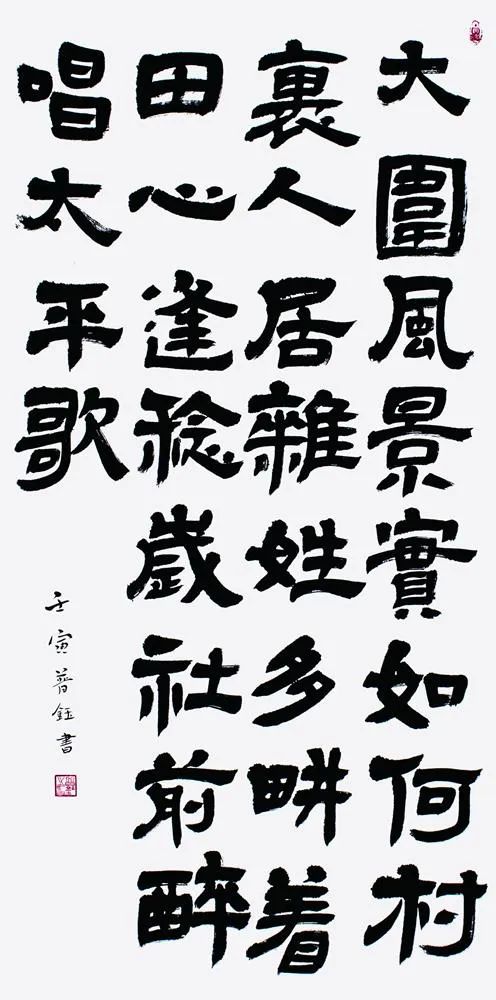 大圍風景實如何村
裏人居雜姓多畊着
田心逢稔歲社前醉
唱太平歌
壬寅普鈺書